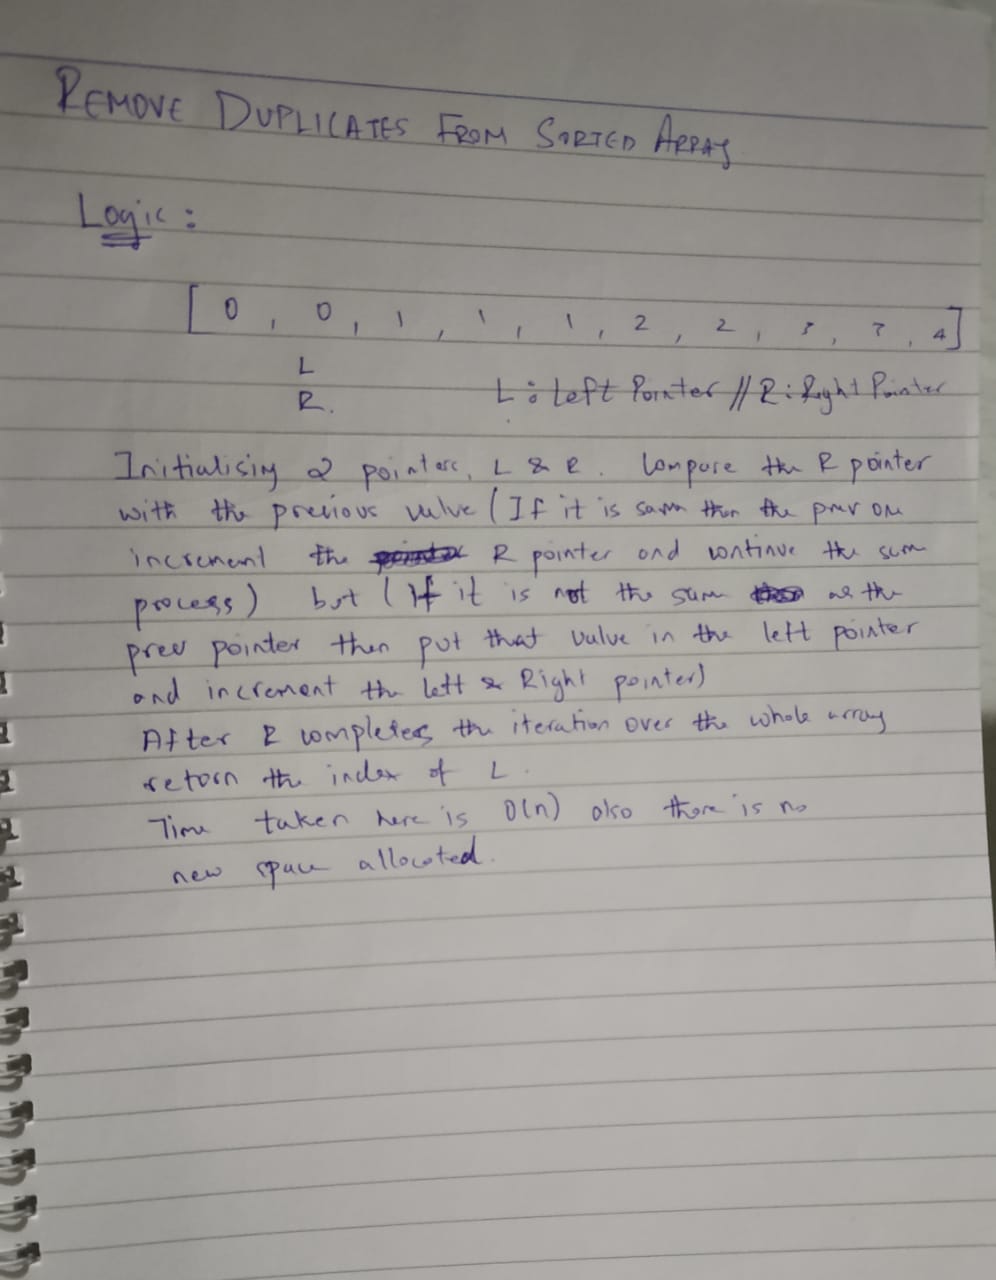 REMOVE DUPLICATES FROM SORTED ARRAY
Logic :
[ 0 , 0 , 1 , 1 , 1 , 2 , 2 , 3 , 3 , 4 ]
L
R. L : Left Pointer // R : Right Pointer
Initialising 2 pointers, L & R. Compare the R pointer
with the previous value (If it is same then the prev one
increment the R pointer and continue the same
process) but (If it is not the same as the
prev pointer then put that value in the left pointer
and increment the left & Right pointer)
After R completes the iteration over the whole array
return the index of L.
Time taken here is O(n) also there is no
new space allocated.